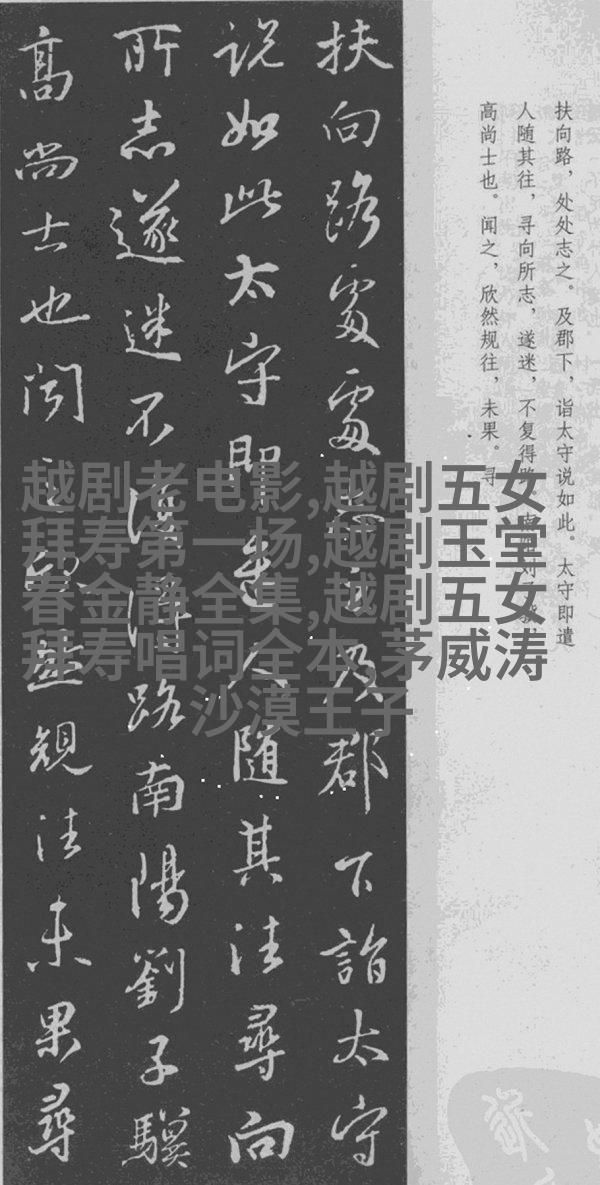 扶向路，处处志之。及郡下，诣太守说如此。太守即遣
人随其往，寻向所志，遂迷，不复得路。南阳刘子骥
高尚士也。闻之，欣然规往，未果。寻
扶向路處處志之及郡下詣太守
説如此太守即遣人随其往尋向
所志遂迷不復得路南陽劉子驥
高尚士也聞之欣然規往未果尋
越剧老电影,越剧五女
拜寿第一场,越剧玉堂
春金静全集,越剧五女
拜寿唱词全本,茅威涛
沙漠王子